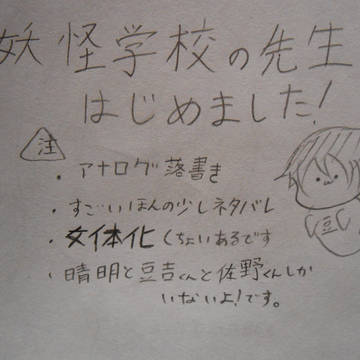 妖怪学校の先生
はじめました!
注
・アナログ落書き
・すごいほんの少しネタバレ
・女体化ちょいあるです
・晴明と豆吉くんと佐野くんしか
いないよ!です。
豆